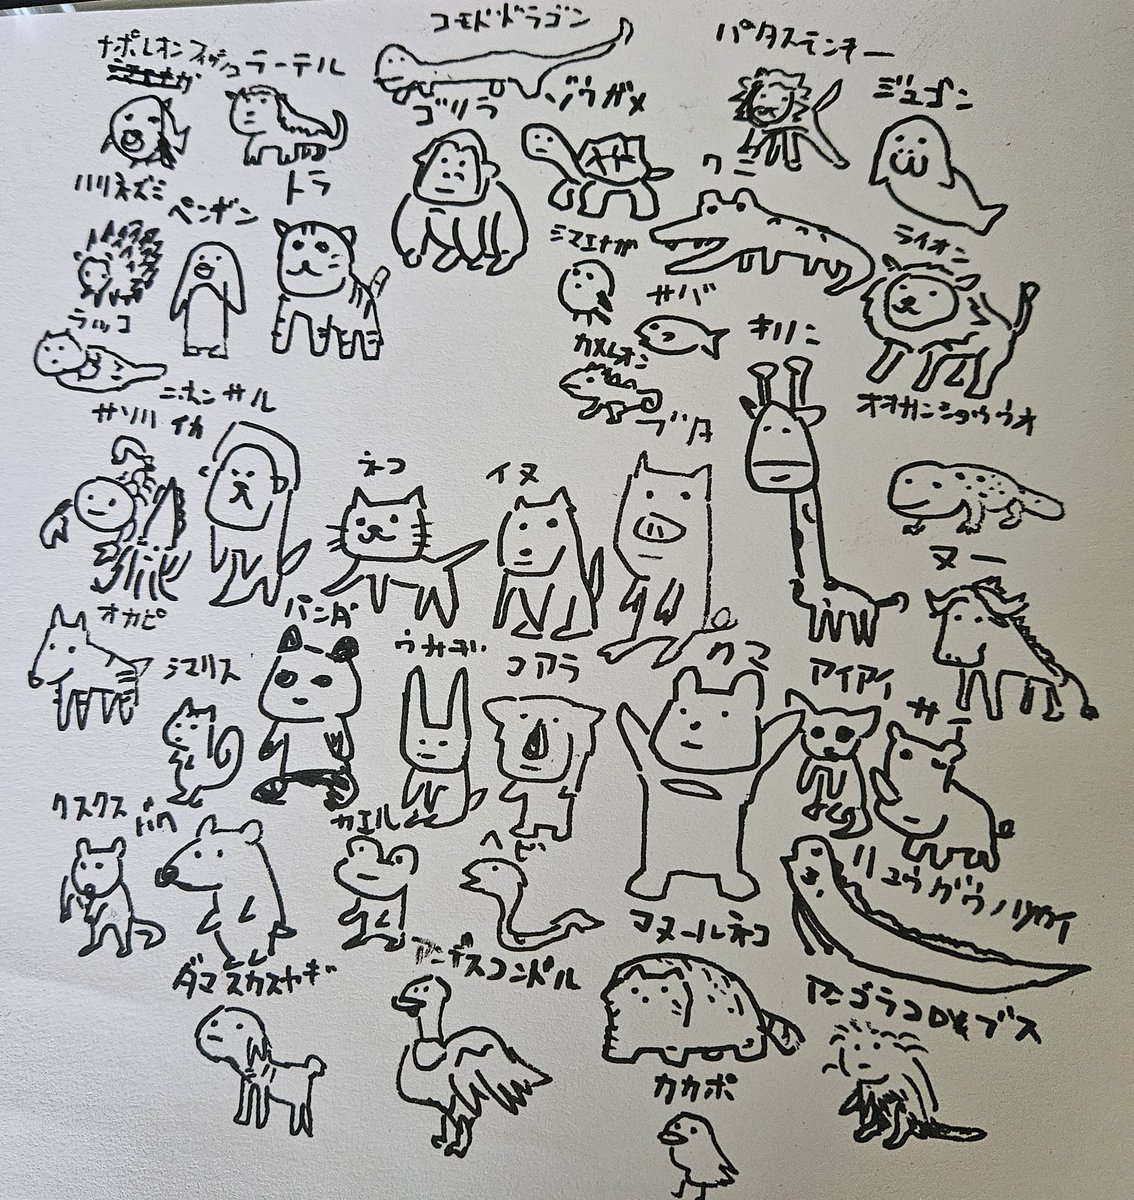 コモドドラゴン
ナポレオンフィッシュ
ラーテル
パタスモンキー
ゴリラ
ゾウガメ
ジュゴン
ハリネズミ
トラ
ワニ
ペンギン
シマエナガ
ライオン
サバ
ラッコ
キリン
カメレオン
ニホンザル
サソリ
イカ
ブタ
オオサンショウウオ
ネコ
イヌ
ヌー
オカピ
パンダ
シマリス
ウサギ
コアラ
クマ
アイアイ
サイ
クスクス
バク
カエル
ヘビ
リュウグウノツカイ
マヌールネコ
ダマスカスヤギ
アンデスコンドル
アンゴラコロブス
カカポ